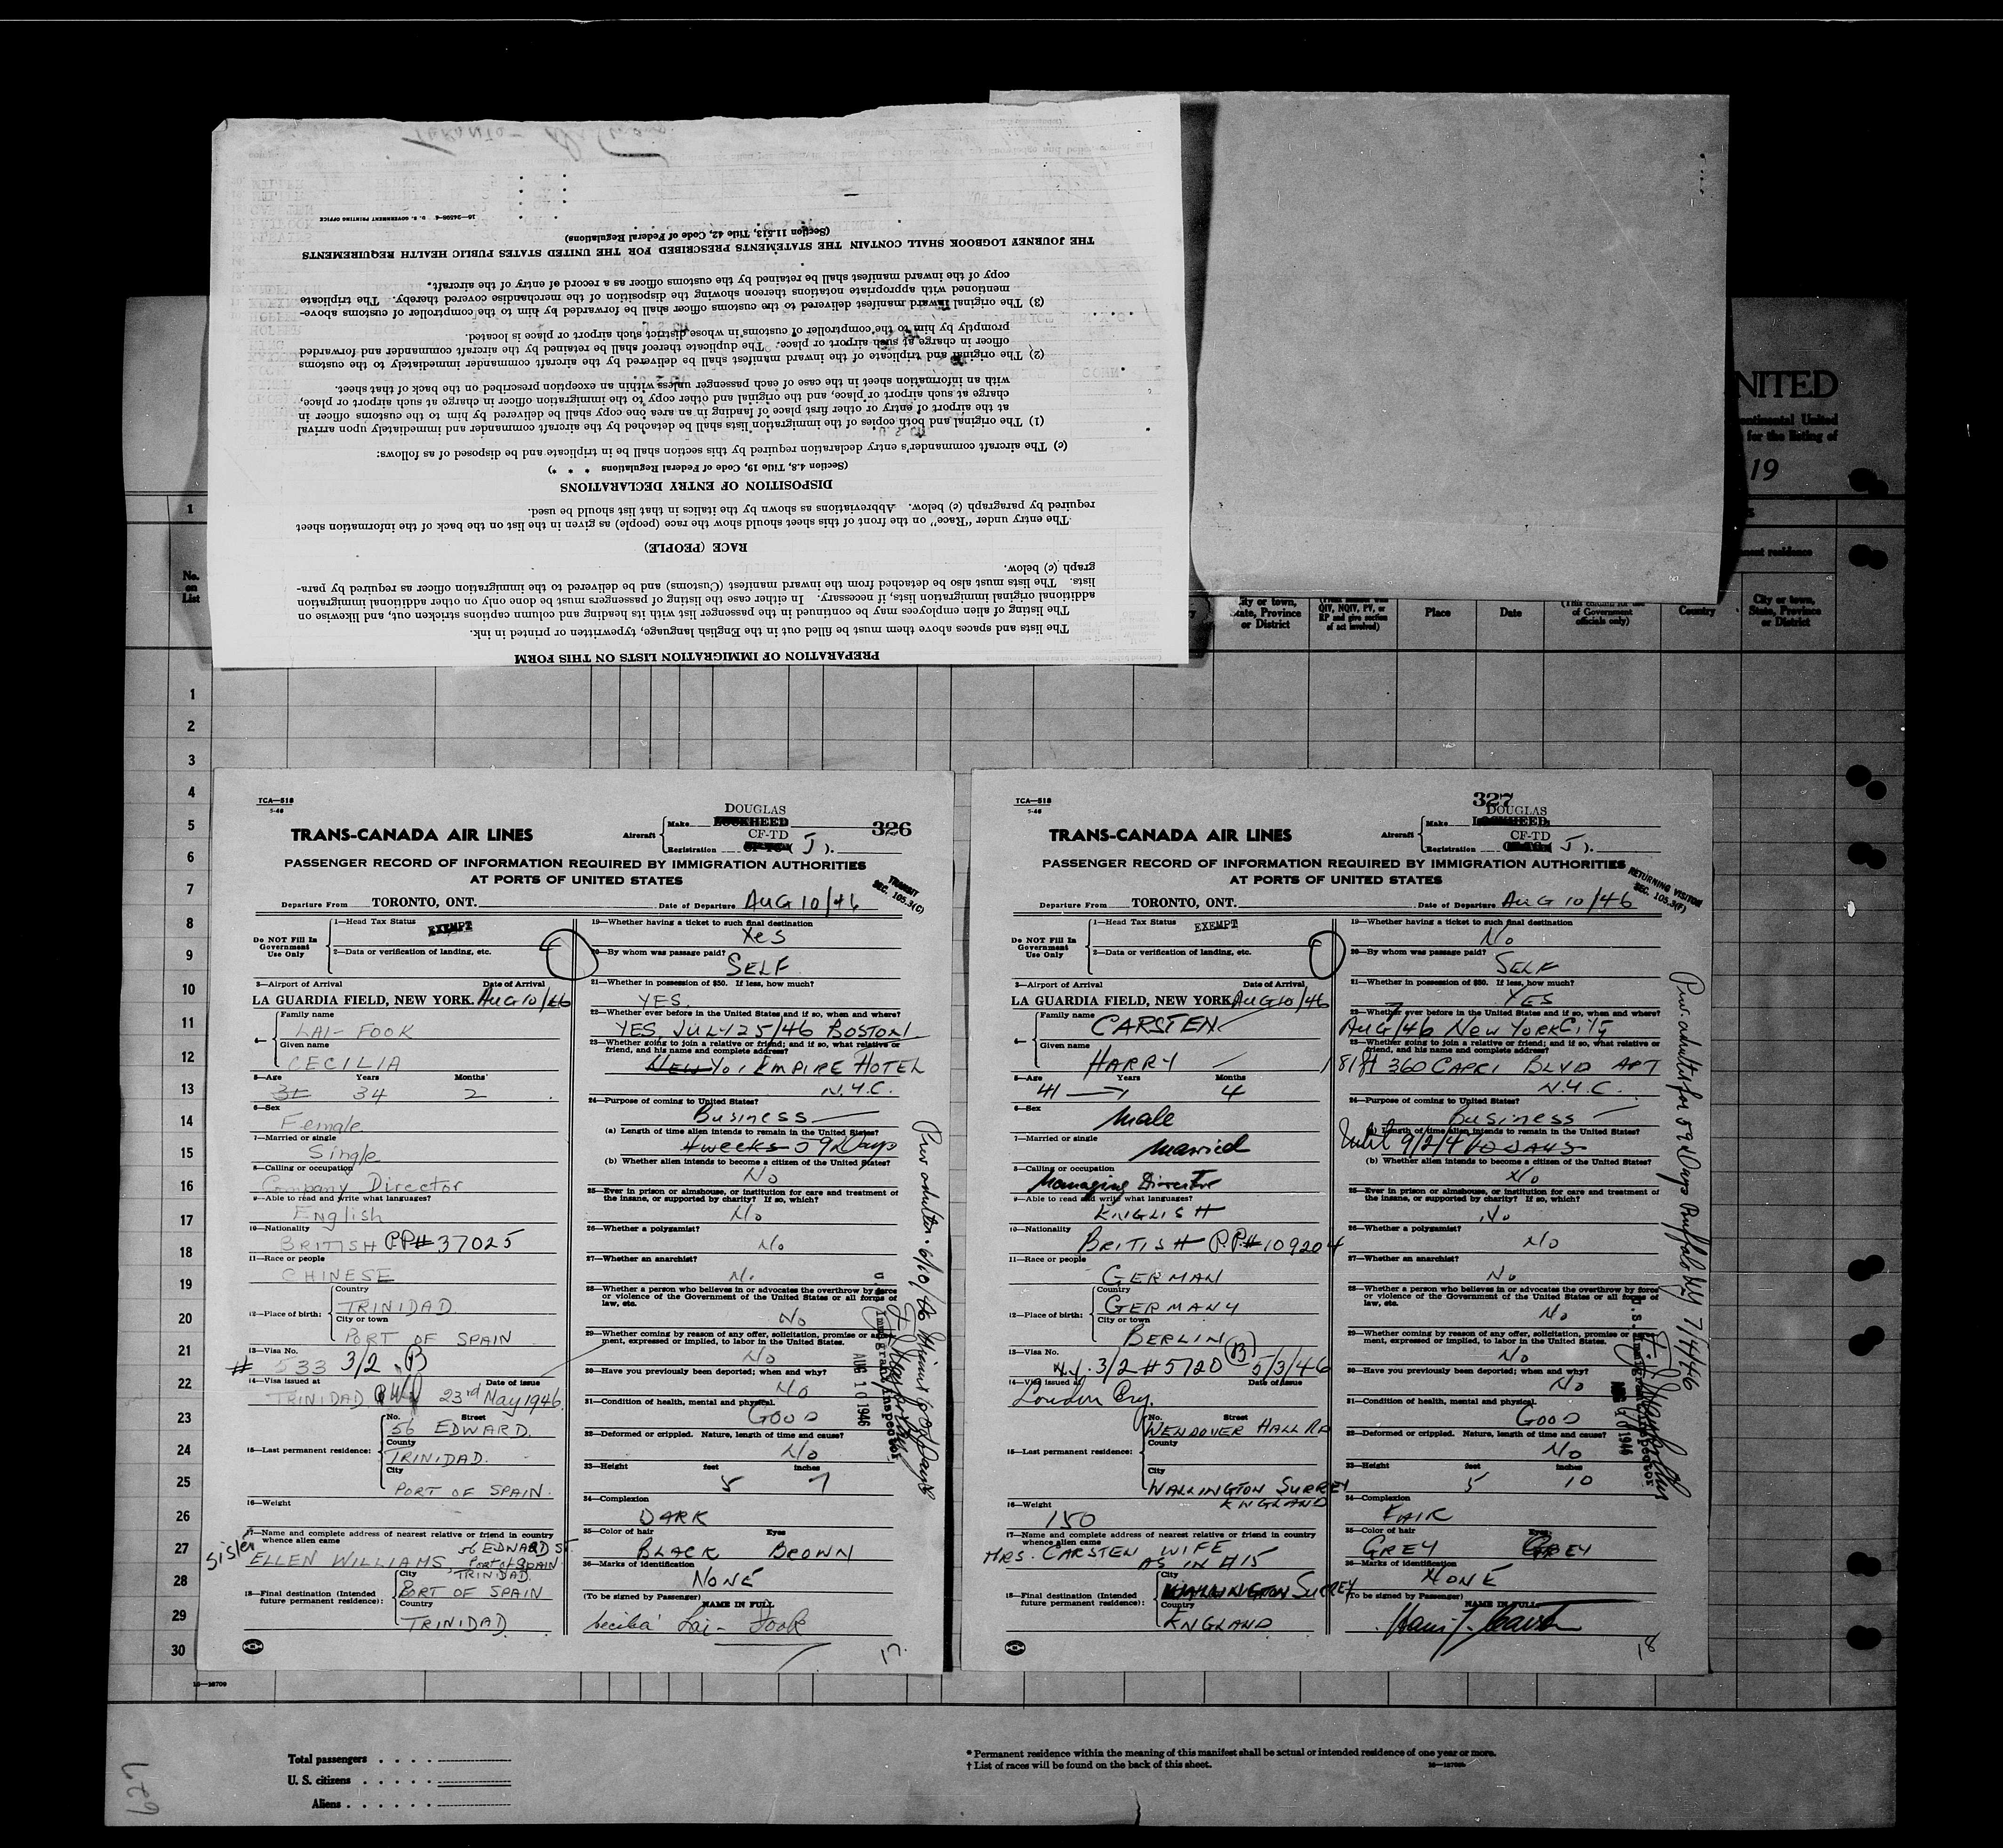 PREPARATION OF IMMIGRATION LISTS ON THIS FORM
The lists and spaces above them must be filled out in the English language, typewritten or printed in ink.
The listing of alien employees may be continued in the passenger list with its heading and column captions stricken out, and likewise on
additional original immigration lists, if necessary. In either case the listing of passengers must be done only on other additional immigration
lists. The lists must also be detached from the inward manifest (Customs) and be delivered to the immigration officer as required by para-
graph (c) below.
RACE (PEOPLE)
The entry under "Race" on the front of this sheet should show the race (people) as given in the list on the back of the information sheet
required by paragraph (c) below. Abbreviations as shown by the italics in that list should be used.
DISPOSITION OF ENTRY DECLARATIONS
(Section 4.8, Title 19, Code of Federal Regulations * * *)
(c) The aircraft commander's entry declaration required by this section shall be in triplicate and be disposed of as follows:
(1) The original and both copies of the immigration lists shall be detached by the aircraft commander and immediately upon arrival
at the airport of entry or other first place of landing in an area one copy shall be delivered by him to the customs officer in
charge at such airport or place, and the original and other copy to the immigration officer in charge at such airport or place,
with an information sheet in the case of each passenger unless within an exception prescribed on the back of that sheet.
(2) The original and triplicate of the inward manifest shall be delivered by the aircraft commander immediately to the customs
officer in charge at such airport or place. The duplicate thereof shall be retained by the aircraft commander and forwarded
promptly by him to the comptroller of customs in whose district such airport or place is located.
(3) The original inward manifest delivered to the customs officer shall be forwarded by him to the comptroller of customs above-
mentioned with appropriate notations thereon showing the disposition of the merchandise covered thereby. The triplicate
copy of the inward manifest shall be retained by the customs officer as a record of entry of the aircraft.
THE JOURNEY LOGBOOK SHALL CONTAIN THE STATEMENTS PRESCRIBED FOR THE UNITED STATES PUBLIC HEALTH REQUIREMENTS
(Section 11.513, Title 42, Code of Federal Regulations)
16—24598-4 U. S. GOVERNMENT PRINTING OFFICE
NITED
ontinental United
for the listing of
19
1
No.
on
List
City or town,
State, Province
or District
QIV, NQIV, PV, or
RP and give section
of act involved)
Place
Date
of Government
officials only)
Country
City or town,
State, Province
or District
1
2
3
4
5
6
7
8
9
10
11
12
13
14
15
16
17
18
19
20
21
22
23
24
25
26
27
28
29
30
TCA—518
DOUGLAS
Aircraft
Make LOCKHEED
326
TRANS-CANADA AIR LINES
CF-TD
Registration ( J ).
PASSENGER RECORD OF INFORMATION REQUIRED BY IMMIGRATION AUTHORITIES
AT PORTS OF UNITED STATES
TRANSIT
SEC. 105.3(C)
Departure From TORONTO, ONT. Date of Departure AUG 10/46
Do NOT Fill In
Government
Use Only
1—Head Tax Status
EXEMPT
2—Data or verification of landing, etc.
3—Airport of Arrival Date of Arrival
LA GUARDIA FIELD, NEW YORK. AUG 10/46
4—
Family name
LAI-FOOK
Given name
CECILIA
5—Age Years Months
34 2
6—Sex
Female
7—Married or single
Single
8—Calling or occupation
Company Director
9—Able to read and write what languages?
English
10—Nationality
BRITISH P.P.# 37025
11—Race or people
CHINESE
12—Place of birth:
Country
TRINIDAD
City or town
PORT OF SPAIN
13—Visa No.
# 533 3/2 B
14—Visa issued at Date of issue
TRINIDAD BWI 23rd May 1946
15—Last permanent residence:
No. Street
56 EDWARD.
County
TRINIDAD.
City
PORT OF SPAIN.
16—Weight
17—Name and complete address of nearest relative or friend in country
whence alien came
56 EDWARD ST
sister
ELLEN WILLIAMS, PORT OF SPAIN
TRINIDAD.
18—Final destination (Intended
future permanent residence):
City
PORT OF SPAIN
Country
TRINIDAD
19—Whether having a ticket to such final destination
Yes
20—By whom was passage paid?
SELF
21—Whether in possession of $50. If less, how much?
YES.
22—Whether ever before in the United States and if so, when and where?
YES, JULY 25/46 BOSTON
23—Whether going to join a relative or friend; and if so, what relative or
friend, and his name and complete address?
EMPIRE HOTEL
N.Y.C.
24—Purpose of coming to United States?
Business
(a) Length of time alien intends to remain in the United States?
4 weeks 59 Days
(b) Whether alien intends to become a citizen of the United States?
No
25—Ever in prison or almshouse, or institution for care and treatment of
the insane, or supported by charity? If so, which?
No
26—Whether a polygamist?
No
27—Whether an anarchist?
No
28—Whether a person who believes in or advocates the overthrow by force
or violence of the Government of the United States or all forms of
law, etc.
No
29—Whether coming by reason of any offer, solicitation, promise or agree-
ment, expressed or implied, to labor in the United States.
No
30—Have you previously been deported; when and why?
No
31—Condition of health, mental and physical.
GOOD
32—Deformed or crippled. Nature, length of time and cause?
No
33—Height feet inches
5 7
34—Complexion
DARK
35—Color of hair Eyes
BLACK BROWN
36—Marks of identification
NONE
(To be signed by Passenger) NAME IN FULL
Cecilia Lai-Fook
17
AUG 10 1946
Immigrant Inspector
TCA—518
327
DOUGLAS
Aircraft
Make LOCKHEED
TRANS-CANADA AIR LINES
CF-TD
Registration ( J ).
PASSENGER RECORD OF INFORMATION REQUIRED BY IMMIGRATION AUTHORITIES
AT PORTS OF UNITED STATES
RETURNING VISITOR
SEC. 105.3(F)
Departure From TORONTO, ONT. Date of Departure AUG 10/46
Do NOT Fill In
Government
Use Only
1—Head Tax Status
EXEMPT
2—Data or verification of landing, etc.
3—Airport of Arrival Date of Arrival
LA GUARDIA FIELD, NEW YORK. AUG 10/46
4—
Family name
CARSTEN
Given name
HARRY
5—Age Years Months
41 4
6—Sex
Male
7—Married or single
Married
8—Calling or occupation
Managing Director
9—Able to read and write what languages?
ENGLISH
10—Nationality
BRITISH P.P.# 109204
11—Race or people
GERMAN
12—Place of birth:
Country
GERMANY
City or town
BERLIN
13—Visa No.
3/2 #5720 (B) 5/3/46
14—Visa issued at Date of issue
London Eng.
15—Last permanent residence:
No. Street
WENDOVER HALL RD
County
City
WALLINGTON SURREY
ENGLAND
16—Weight
150
17—Name and complete address of nearest relative or friend in country
whence alien came
MRS. CARSTEN WIFE
AS IN #15
18—Final destination (Intended
future permanent residence):
City
WALLINGTON SURREY
Country
ENGLAND
19—Whether having a ticket to such final destination
No
20—By whom was passage paid?
SELF
21—Whether in possession of $50. If less, how much?
YES
22—Whether ever before in the United States and if so, when and where?
AUG/46 NEW YORK CITY
23—Whether going to join a relative or friend; and if so, what relative or
friend, and his name and complete address?
360 CAPRI BLVD APT
N.Y.C.
24—Purpose of coming to United States?
Business
(a) Length of time alien intends to remain in the United States?
Until 9/2/46
(b) Whether alien intends to become a citizen of the United States?
No
25—Ever in prison or almshouse, or institution for care and treatment of
the insane, or supported by charity? If so, which?
No
26—Whether a polygamist?
No
27—Whether an anarchist?
No
28—Whether a person who believes in or advocates the overthrow by force
or violence of the Government of the United States or all forms of
law, etc.
No
29—Whether coming by reason of any offer, solicitation, promise or agree-
ment, expressed or implied, to labor in the United States.
No
30—Have you previously been deported; when and why?
No
31—Condition of health, mental and physical.
GOOD
32—Deformed or crippled. Nature, length of time and cause?
No
33—Height feet inches
5 10
34—Complexion
FAIR
35—Color of hair Eyes
GREY GREY
36—Marks of identification
NONE
(To be signed by Passenger) NAME IN FULL
18
Prev. admitted for 59 Days Buffalo NY
Total passengers
U. S. citizens
Aliens
* Permanent residence within the meaning of this manifest shall be actual or intended residence of one year or more.
† List of races will be found on the back of this sheet.
629